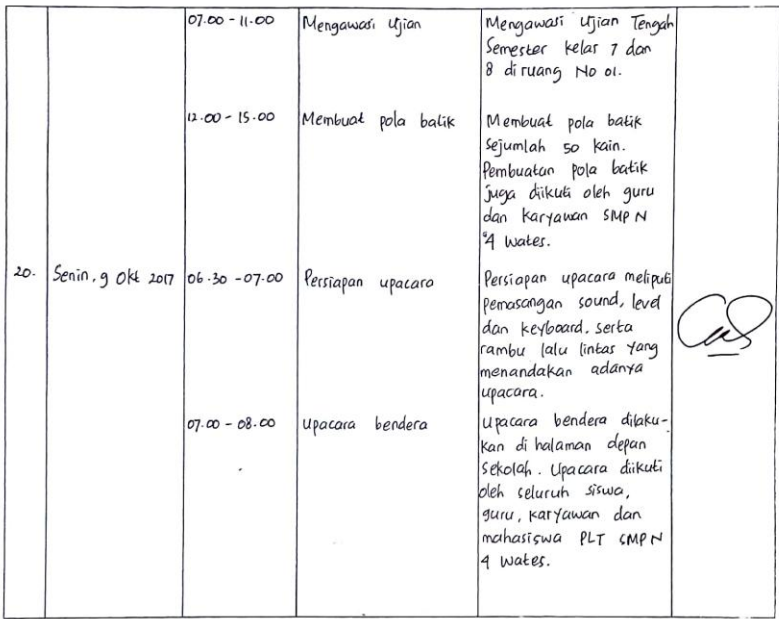 07.00 - 11.00 Mengawasi Ujian Mengawasi Ujian Tengah
Semester kelas 7 dan
8 di ruang No 01.
12.00 - 15.00 Membuat pola batik Membuat pola batik
sejumlah 50 kain.
Pembuatan pola batik
juga diikuti oleh guru
dan Karyawan SMP N
4 Wates.
20. Senin, 9 Okt 2017 06.30 - 07.00 Persiapan upacara Persiapan upacara meliputi
pemasangan sound, level
dan keyboard. serta
rambu lalu lintas yang
menandakan adanya
upacara.
07.00 - 08.00 Upacara bendera Upacara bendera dilaku-
kan di halaman depan
sekolah. Upacara diikuti
oleh seluruh siswa,
guru, karyawan dan
mahasiswa PLT SMP N
4 Wates.